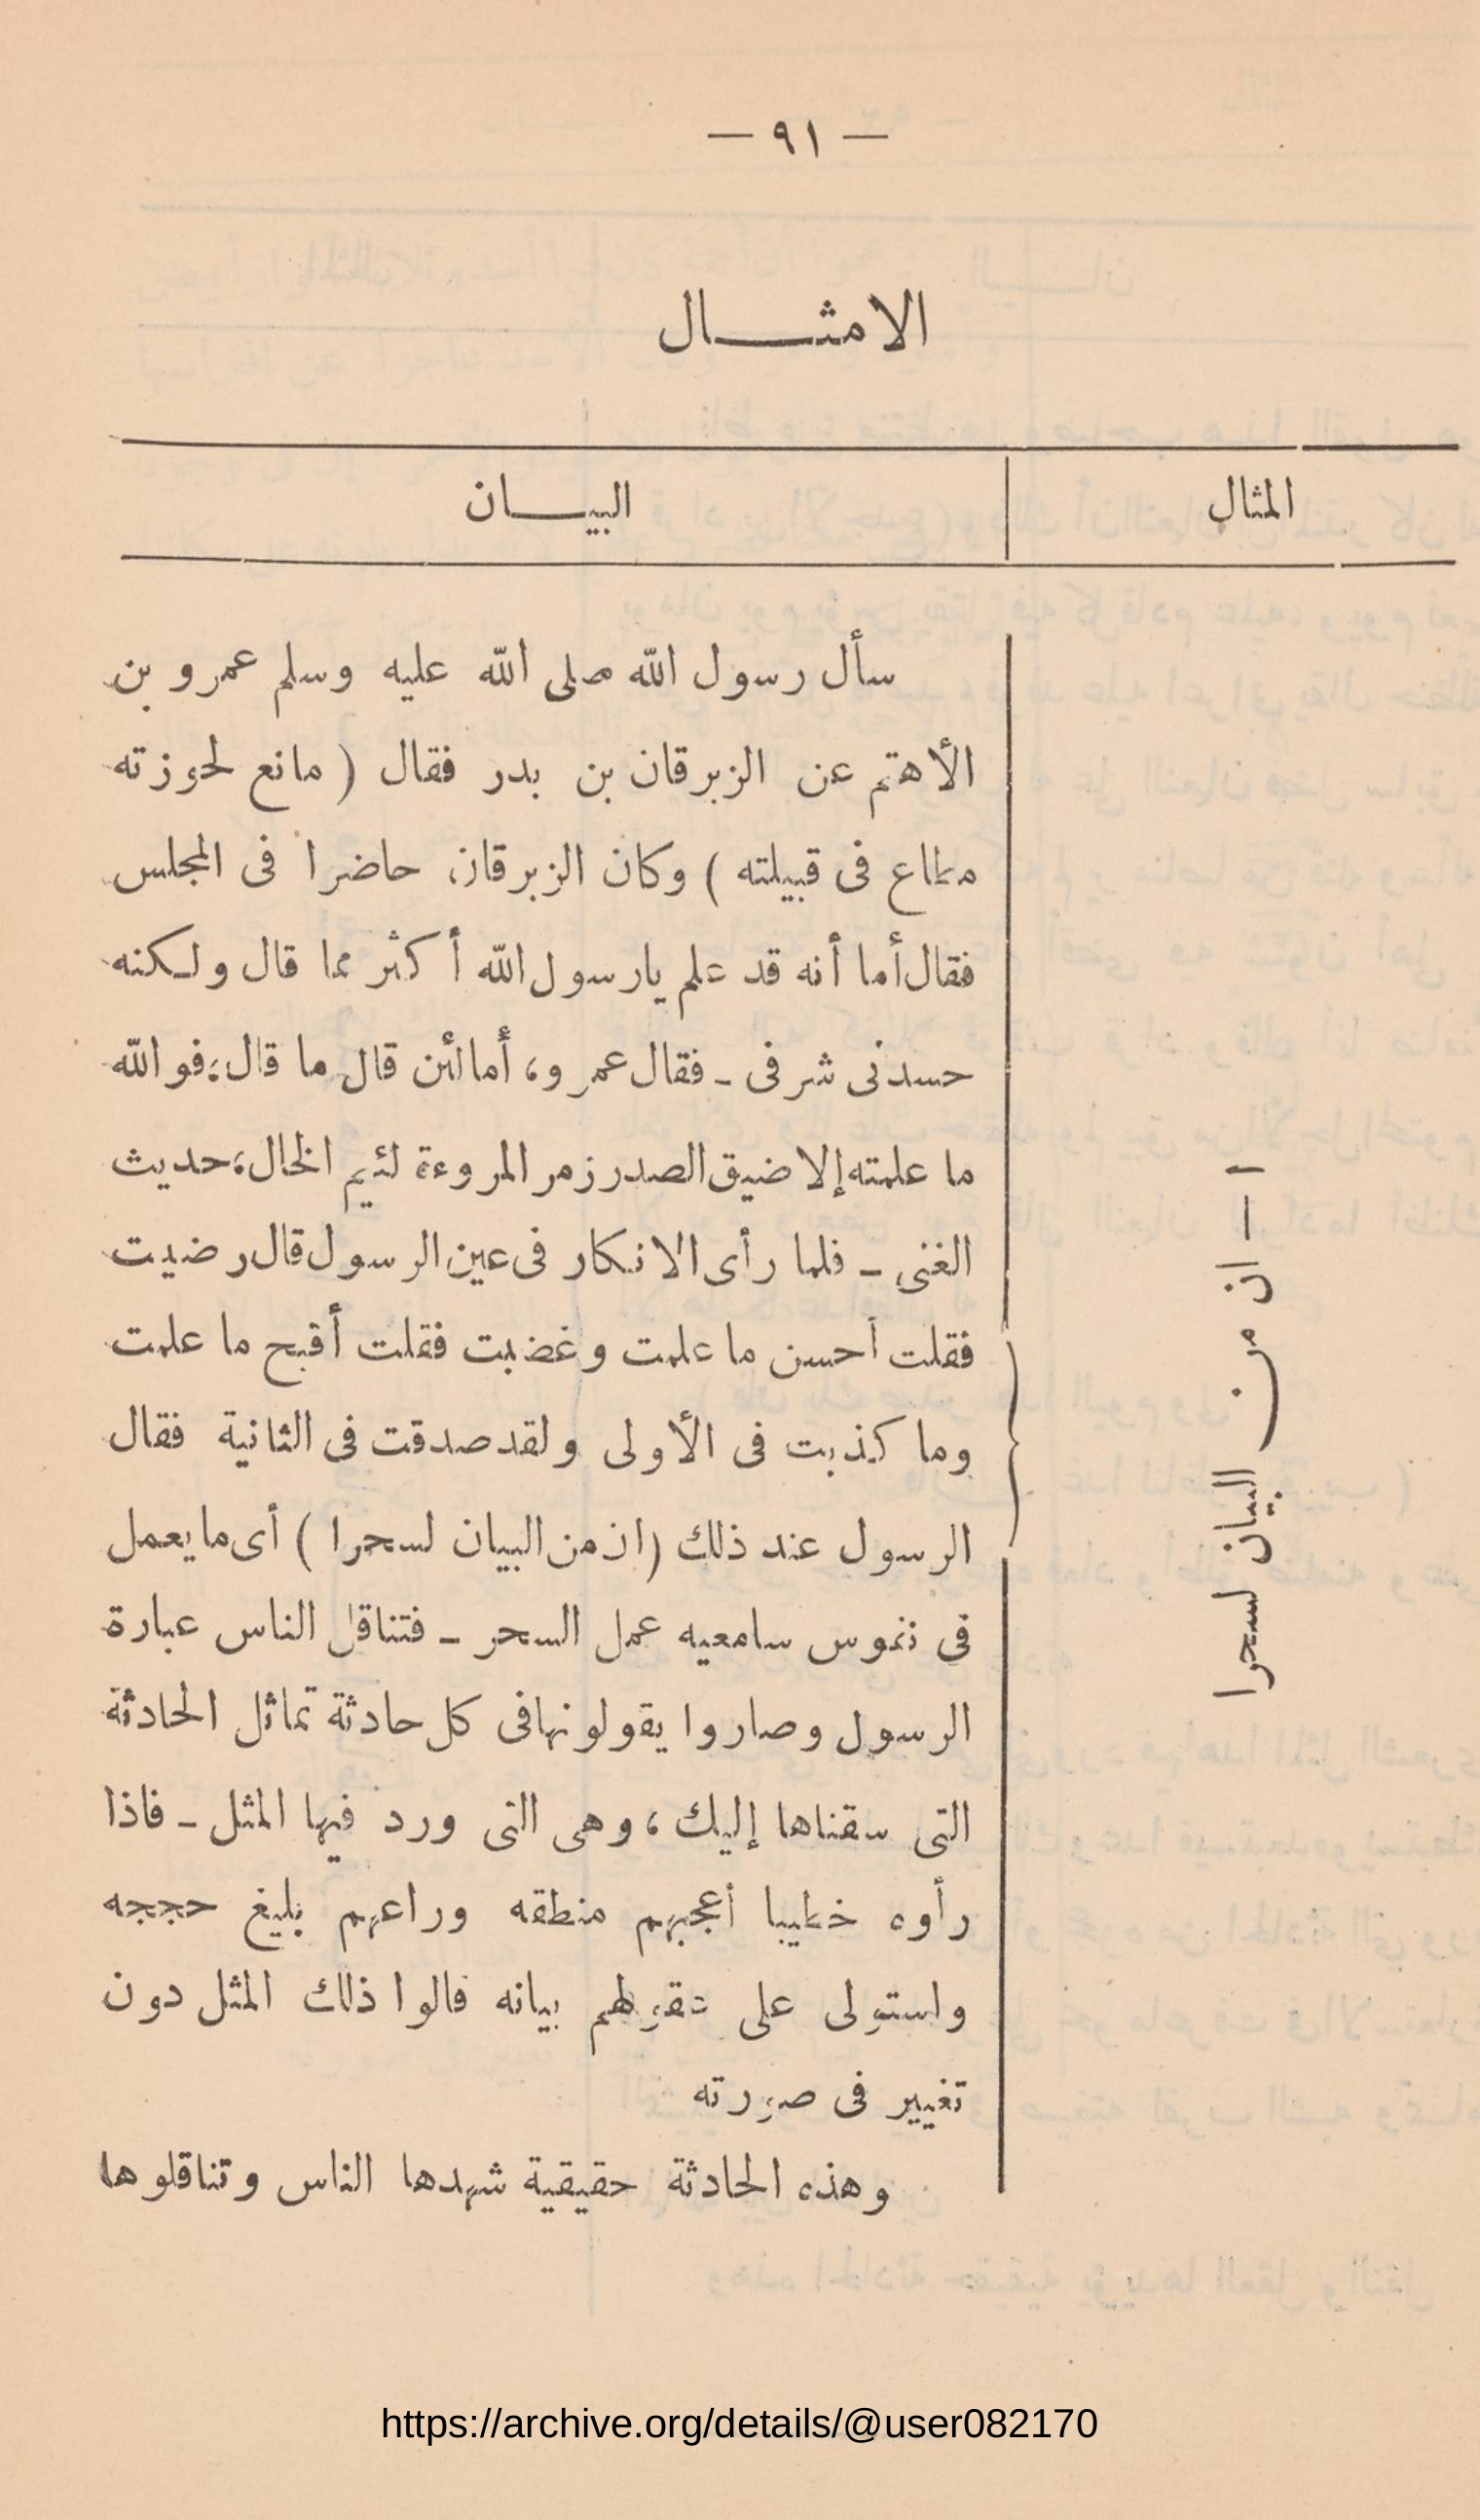 — ٩١ —
الامثـــال
المثال
البيـــان
سأل رسول الله صلى الله عليه وسلم عمرو بن
الأهتم عن الزبرقان بن بدر فقال ( مانع لحوزته
مطاع فى قبيلته ) وكان الزبرقان حاضرا فى المجلس
فقال أما أنه قد علم يارسول الله أكثر مما قال ولكنه
حسدنى شرفى ـ فقال عمرو، أما لئن قال ما قال، فوالله
ما علمته إلا ضيق الصدر زمر المروءة لئيم الخال، حديث
الغنى ـ فلما رأى الانكار فى عين الرسول قال رضيت
فقلت أحسن ما علمت وغضبت فقلت أقبح ما علمت
وما كذبت فى الأولى ولقد صدقت فى الثانية فقال
الرسول عند ذلك (ان من البيان لسحرا ) أى ما يعمل
فى نفوس سامعيه عمل السحر ـ فتناقل الناس عبارة
الرسول وصاروا يقولونها فى كل حادثة تماثل الحادثة
التى سقناها إليك، وهى التى ورد فيها المثل ـ فاذا
رأوه خطيبا أعجبهم منطقه وراعهم بليغ حججه
واستولى على بيانه قالوا ذلك المثل دون
تغيير فى صورته
وهذه الحادثة حقيقية شهدها الناس وتناقلوها
١ — ان من البيان لسحرا
https://archive.org/details/@user082170